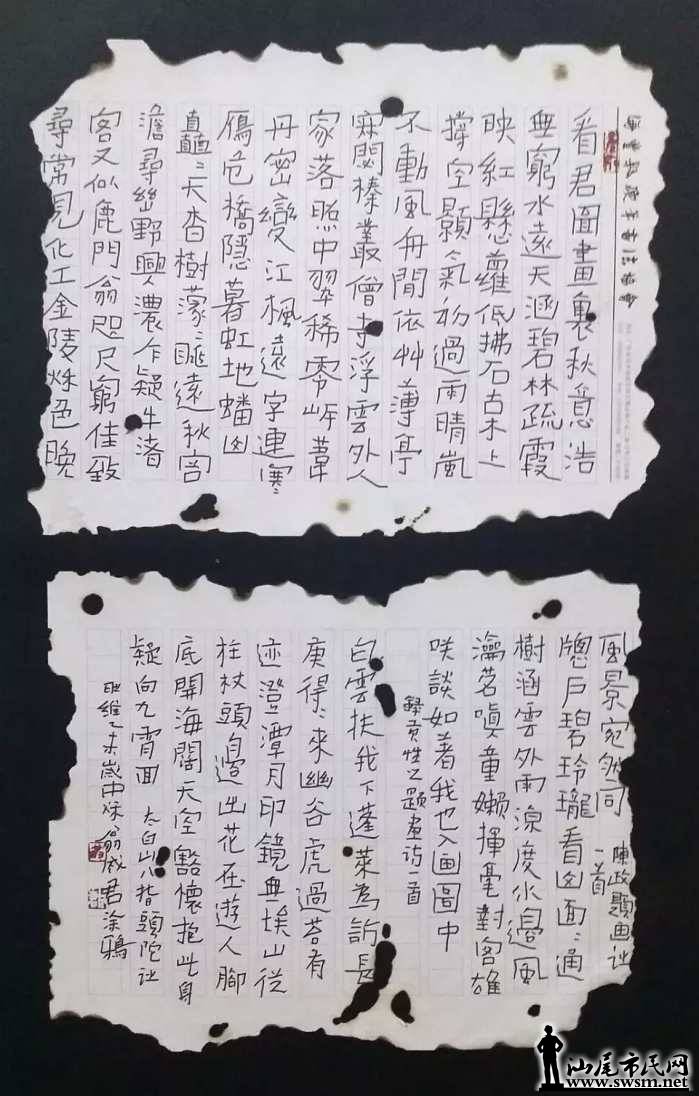 看君圖畫裏秋意浩
無窮水遠天涵碧林疏霞
映紅懸蘿低拂石古木上
撐空顥氣初過雨晴嵐
不動風舟閒依艸薄亭
閟榛叢僧寺浮雲外人
家落照中翠稀零岸葦
丹密變江楓遠字連寒
鴈危橋隱暮虹地蟠幽
矗〻天杳樹濛〻眺遠秋容
澹尋幽野興濃乍疑牛渚
客又似鹿門翁咫尺窮佳致
尋常見化工金陵秌色晚
風景宛然同 陳政題画詩一首
牕戶碧玲瓏看幽面〻通
樹涵雲外雨涼度水邊風
瀹茗嗔童嬾揮毫對客雄
咲談如著我也入画圖中
錄貢性之題畫詩一首
白雲扶我下蓬萊為訪長
庚得〻來幽谷虎過苔有
迹澄潭月印鏡無埃山從
柱杖頭邊出花在遊人腳
底開海闊天空豁懷抱此身
疑向九霄回 太白山八指頭陀詩
維乙未歲中秌翁咸君涂鴉
汕尾市民网
www.swsm.net